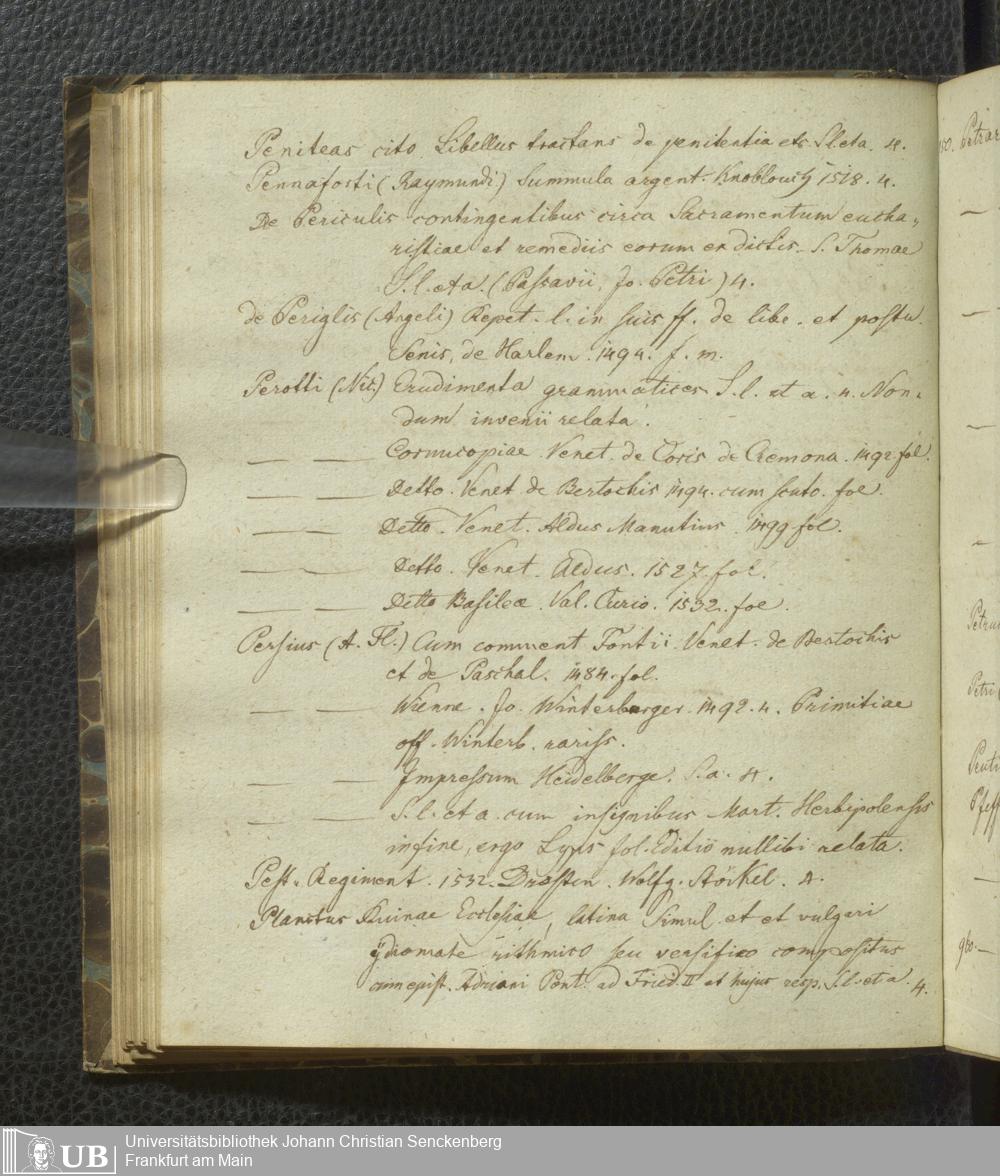 Peniteas cito Libellus tractans de penitentia etc. S.l.eta. 4.
Pennaforti (Raymundi) Summula argent. Knoblouch 1518. 4.
De Periculis contingentibus circa Sacramentum eucha-
ristiae et remediis eorum ex dictis S. Thomae
S.l. et a. (Passavii, Jo. Petri) 4.
de Periglis (Angeli) Repet. l. in suis ff. de libe. et postu.
Senis, de Harlem. 1494. f. m.
Perotti (Nic.) Erudimenta grammatices S. l. et a. 4. Non-
dum invenii relata.
— — Cornucopiae Venet. de Coris de Cremona. 1492 fol.
— — Detto. Venet de Bertochis 1494. cum scuto. fol.
— — Detto. Venet. Aldus Manutius 1499 fol.
— — Detto. Venet. Aldus. 1527. fol.
— — Detto Basilea. Val. Curio. 1532. fol.
Persius (A. Fl.) Cum comment Fontii. Venet. de Bertochis
et de Paschal. 1484. fol.
— — Wienne. Jo. Winterburger. 1492. 4. Primitiae
off. Winterb. rariss.
— — Impressum Heidelberge. S. a. 4.
— — S. l. et a. cum insignibus Mart. Herbipolensis
in fine, ergo Lyps fol. Editio nullibi relata.
Pest-Regiment. 1532. Dressten. Wolfg. Störkel. 4.
Planctus Ruinae Ecclesiae, latina simul et et vulgari
ydiomate rithmico seu versifico compositus
cum epist. Adriani Pont. ad Fried. II et hujus resp. S.l. et a. 4.
Petrar
Petri
960.
UB
Universitätsbibliothek Johann Christian Senckenberg
Frankfurt am Main